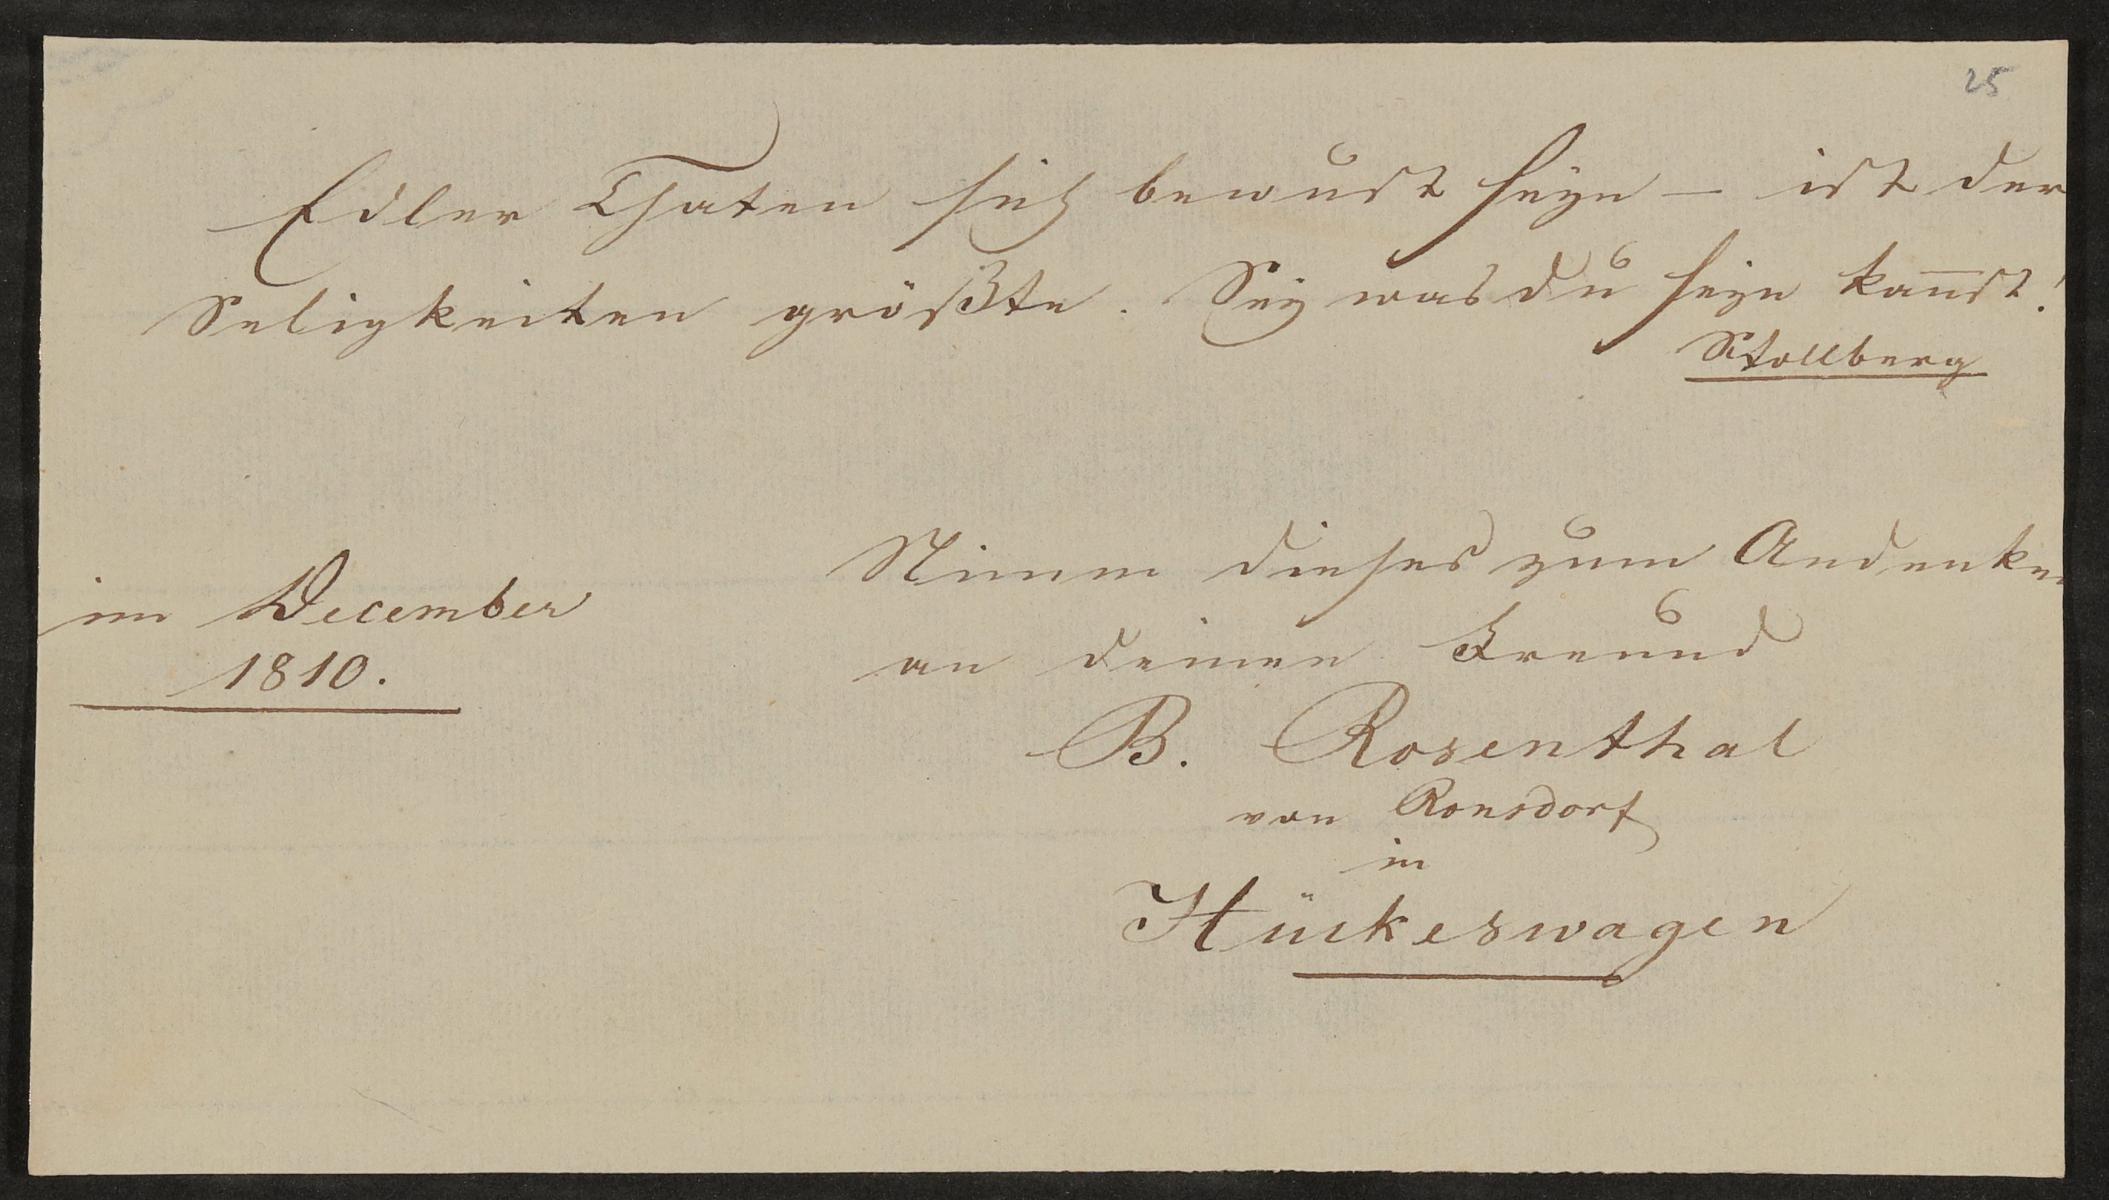 25
Edler Thaten sich bewust seyn – ist der
Seligkeiten größte. Sey was du seyn kan̅st!
Stollberg
Nimm dieses zum Andenken
im December
an deinen Freund
1810.
B. Rosenthal
von Ronsdorf
in
Hückeswagen